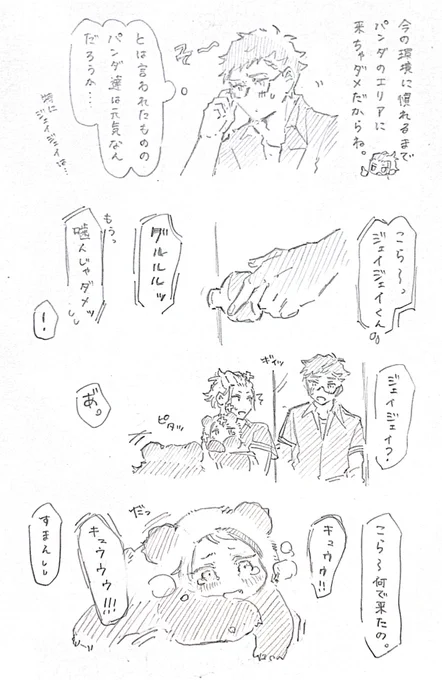 今の環境に慣れるまで
パンダのエリアに
来ちゃダメだからね。
とは言われたものの
パンダ達は元気なん
だろうか…
特に
ジェイジェイは…
こら〜っ
ジェイジェイくん
グルルルッ
もうっ
噛んじゃダメッ
！
ジェイジェイ？
ギィッ
ピタッ
あ。
こら〜何で来たの。
キュウウ!!
だっ
キュウウウ!!!
すまん